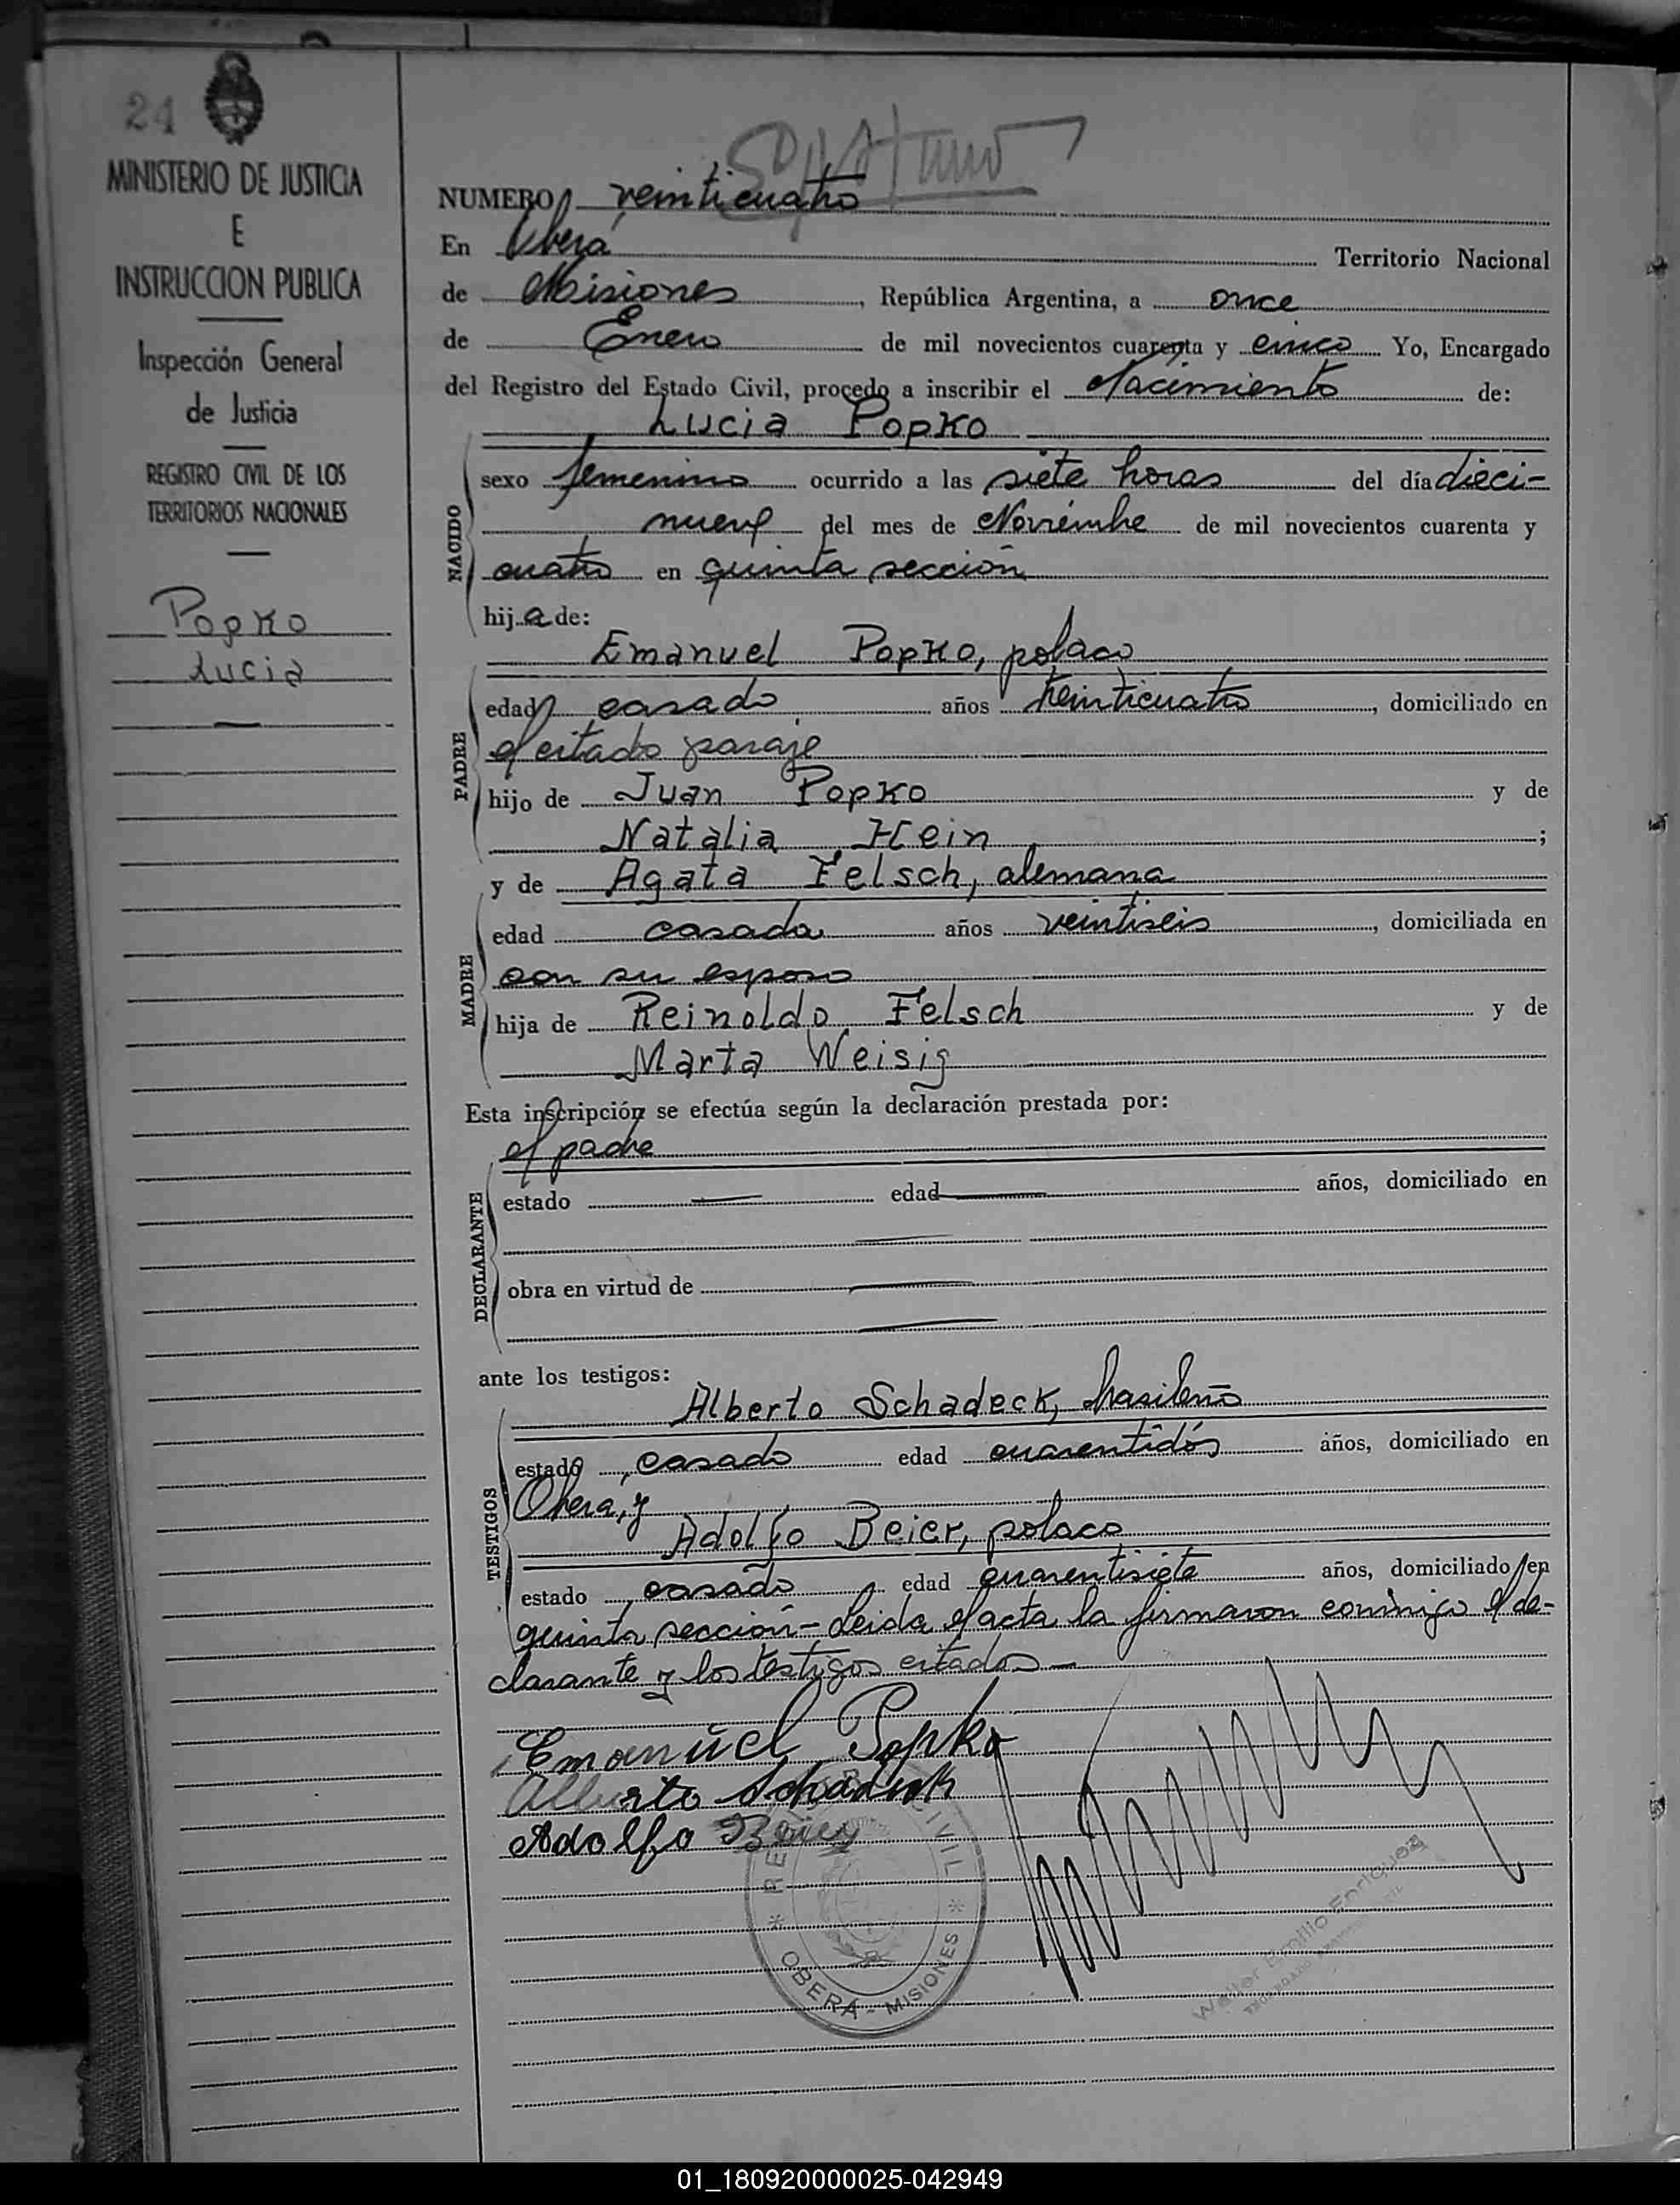 24
MINISTERIO DE JUSTICIA
E
INSTRUCCION PUBLICA
Inspección General
de Justicia
REGISTRO CIVIL DE LOS
TERRITORIOS NACIONALES
Popko
Lucia
NUMERO veinticuatro
En Oberá Territorio Nacional
de Misiones, República Argentina, a once
de Enero de mil novecientos cuarenta y cinco Yo, Encargado
del Registro del Estado Civil, procedo a inscribir el Nacimiento de:
Lucia Popko
NACIDO
sexo femenino ocurrido a las siete horas del día dieci-
nueve del mes de Noviembre de mil novecientos cuarenta y
cuatro en quinta sección
hija de:
Emanuel Popko, polaco
PADRE
edad casado años treinticuatro, domiciliado en
el citado paraje
hijo de Juan Popko y de
Natalia Hein;
y de Agata Felsch, alemana
MADRE
edad casada años veintiseis, domiciliada en
con su esposo
hija de Reinoldo Felsch y de
Marta Weisig
Esta inscripción se efectúa según la declaración prestada por:
el padre
DECLARANTE
estado — edad — años, domiciliado en
—
obra en virtud de —
—
ante los testigos:
Alberto Schadeck, brasileño
TESTIGOS
estado casado edad cuarentidós años, domiciliado en
Oberá, y
Adolfo Beier, polaco
estado casado edad cuarentisiete años, domiciliado en
quinta sección - Leida el acta la firmaron conmigo el de-
clarante y los testigos citados —
Emanuel Popko
Alberto Schadeck
Adolfo Beier
REGISTRO CIVIL
OBERÁ - MISIONES
Walter Emilio Enriquez
01_180920000025-042949